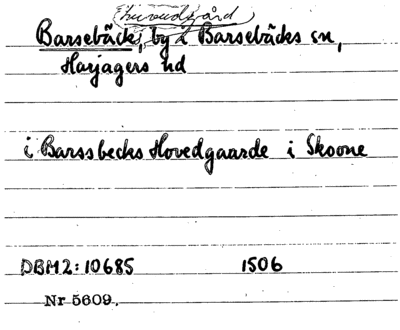 huvudgård
Barsebäck, by i Barsebäcks sn,
Harjagers hd
i Barssbecks Hovedgaarde i Skoone
DBM2:10685 1506
Nr 5609.